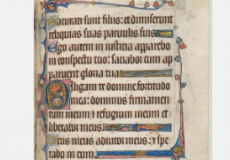 Saturati sunt filiis: et dimiserunt
reliquias suas paruulis suis
Ego autem in iusticia apparebo
in conspectu tuo: saciabor cum ap
paruerit gloria tua
Diligam te domine fortitudo
mea: dominus firmamen
tum meum et refugium meum et
liberator meus
Deus meus adiutor meus: et spe
rabo in eum